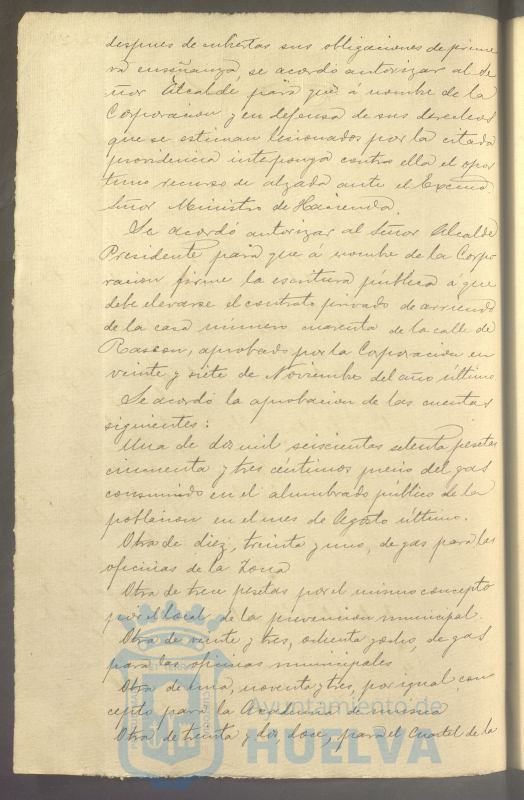 despues de cubiertas sus obligaciones de prime
ra enseñanza, se acordó autorizar al Se
ñor Alcalde para que á nombre de la
Corporacion y en defensa de sus derechos
que se estiman lesionados por la citada
providencia interponga contra ella el opor
tuno recurso de alzada ante el Excmo
Señor Ministro de Hacienda.
Se acordó autorizar al Señor Alcalde
Presidente para que á nombre de la Corpo
racion firme la escritura pública á que
debe elevarse el contrato privado de arriendo
de la casa número cuarenta de la calle de
Rascon, aprobado por la Corporacion en
veinte y siete de Noviembre del año último.
Se acordó la aprobacion de las cuentas
siguientes:
Una de dos mil seiscientas setenta pesetas
cincuenta y tres céntimos precio del gas
consumido en el alumbrado público de la
poblacion en el mes de Agosto último.
Otra de diez, treinta y uno, de gas para las
oficinas de la Zona
Otra de trece pesetas por el mismo concepto
por el local de la prevencion municipal.
Otra de veinte y tres, ochenta y ocho, de gas
para las oficinas municipales
Otra de una, noventa y tres, por igual con
cepto, para la Academia de musica
Otra de treinta y dos, doce, para el Cuartel de la
Ayuntamiento de
HUELVA